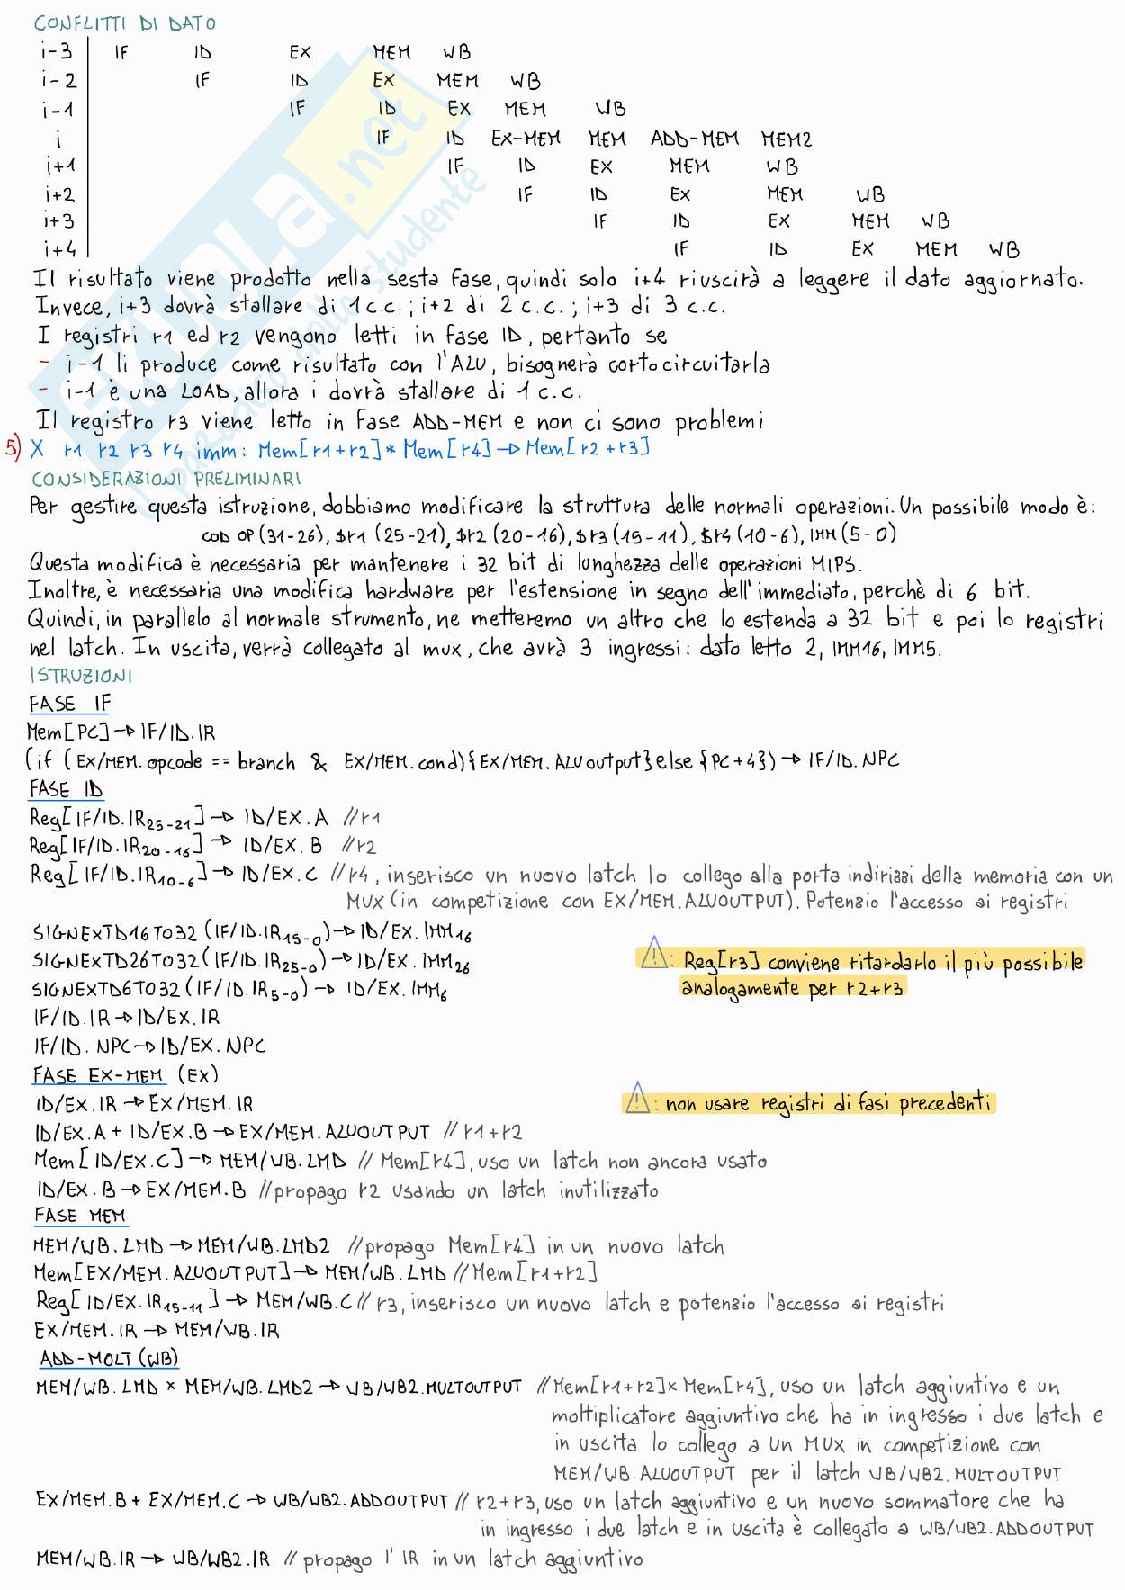 CONFLITTI DI DATO
i-3 IF ID EX MEM WB
i-2 IF ID EX MEM WB
i-1 IF ID EX MEM WB
i IF ID EX-MEM MEM ADD-MEM MEM2
i+1 IF ID EX MEM WB
i+2 IF ID EX MEM WB
i+3 IF ID EX MEM WB
i+4 IF ID EX MEM WB
Il risultato viene prodotto nella sesta fase, quindi solo i+4 riuscirà a leggere il dato aggiornato.
Invece, i+3 dovrà stallare di 1 c.c.; i+2 di 2 c.c.; i+3 di 3 c.c.
I registri r1 ed r2 vengono letti in fase ID, pertanto se
- i-1 li produce come risultato con l'ALU, bisognerà cortocircuitarla
- i-1 è una LOAD, allora i dovrà stallare di 1 c.c.
Il registro r3 viene letto in fase ADD-MEM e non ci sono problemi
5) X r1 r2 r3 r4 imm: Mem[r1+r2]*Mem[r4]→Mem[r2+r3]
CONSIDERAZIONI PRELIMINARI
Per gestire questa istruzione, dobbiamo modificare la struttura delle normali operazioni. Un possibile modo è:
COD OP (31-26), $r1 (25-21), $r2 (20-16), $r3 (15-11), $r4 (10-6), IMM (5-0)
Questa modifica è necessaria per mantenere i 32 bit di lunghezza delle operazioni MIPS.
Inoltre, è necessaria una modifica hardware per l'estensione in segno dell'immediato, perchè di 6 bit.
Quindi, in parallelo al normale strumento, ne metteremo un altro che lo estenda a 32 bit e poi lo registri
nel latch. In uscita, verrà collegato al mux, che avrà 3 ingressi: dato letto 2, IMM16, IMM5.
ISTRUZIONI
FASE IF
Mem[PC]→IF/ID.IR
(if (EX/MEM.opcode == branch & EX/MEM.cond){EX/MEM.ALUoutput}else{PC+4})→IF/ID.NPC
FASE ID
Reg[IF/ID.IR25-21]→ID/EX.A //r1
Reg[IF/ID.IR20-16]→ID/EX.B //r2
Reg[IF/ID.IR10-6]→ID/EX.C //r4, inserisco un nuovo latch lo collego alla porta indirizzi della memoria con un
MUX (in competizione con EX/MEM.ALUOUTPUT). Potenzio l'accesso ai registri
SIGNEXTD16TO32(IF/ID.IR15-0)→ID/EX.IMM16
SIGNEXTD26TO32(IF/ID.IR25-0)→ID/EX.IMM26
⚠: Reg[r3] conviene ritardarlo il più possibile
analogamente per r2+r3
SIGNEXTD6TO32(IF/ID.IR5-0)→ID/EX.IMM6
IF/ID.IR→ID/EX.IR
IF/ID.NPC→ID/EX.NPC
FASE EX-MEM (EX)
ID/EX.IR→EX/MEM.IR
⚠: non usare registri di fasi precedenti
ID/EX.A + ID/EX.B→EX/MEM.ALUOUTPUT //r1+r2
Mem[ID/EX.C]→MEM/WB.LMD //Mem[r4], uso un latch non ancora usato
ID/EX.B→EX/MEM.B //propago r2 usando un latch inutilizzato
FASE MEM
MEM/WB.LMD→MEM/WB.LMD2 //propago Mem[r4] in un nuovo latch
Mem[EX/MEM.ALUOUTPUT]→MEM/WB.LMD //Mem[r1+r2]
Reg[ID/EX.IR15-11]→MEM/WB.C //r3, inserisco un nuovo latch e potenzio l'accesso ai registri
EX/MEM.IR→MEM/WB.IR
ADD-MOLT (WB)
MEM/WB.LMD × MEM/WB.LMD2→WB/WB2.MULTOUTPUT //Mem[r1+r2]×Mem[r4], uso un latch aggiuntivo e un
moltiplicatore aggiuntivo che ha in ingresso i due latch e
in uscita lo collego a un MUX in competizione con
MEM/WB.ALUOUTPUT per il latch WB/WB2.MULTOUTPUT
EX/MEM.B + EX/MEM.C→WB/WB2.ADDOUTPUT //r2+r3, uso un latch aggiuntivo e un nuovo sommatore che ha
in ingresso i due latch e in uscita è collegato a WB/WB2.ADDOUTPUT
MEM/WB.IR→WB/WB2.IR //propago l'IR in un latch aggiuntivo